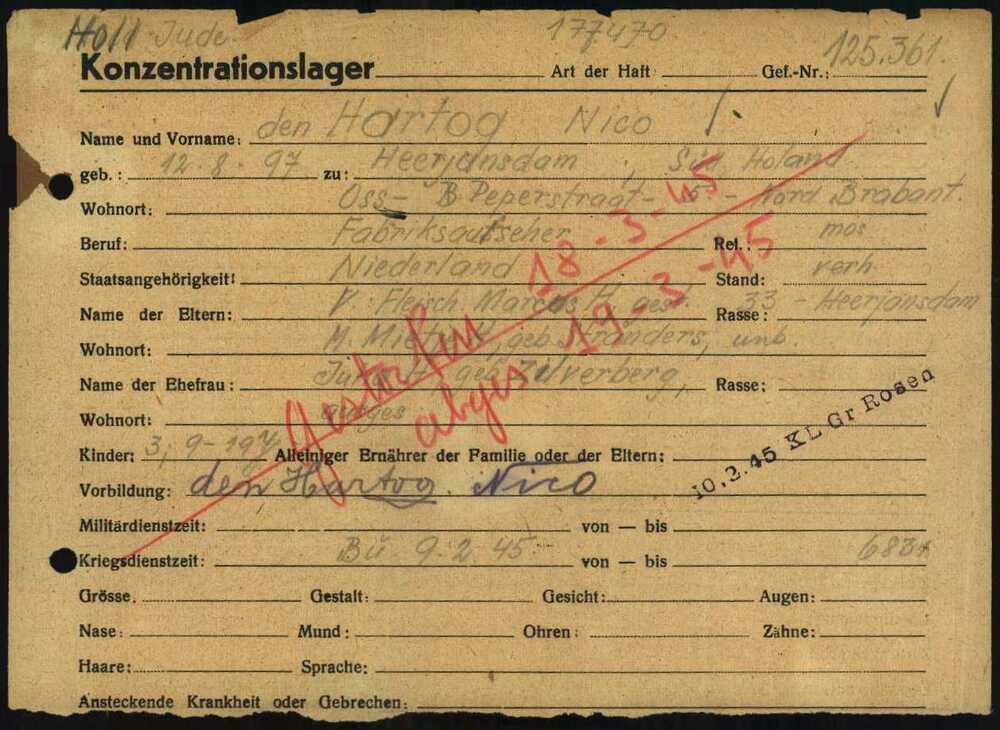 Holl Jude 177470 125.361.
Konzentrationslager Art der Haft Gef.-Nr.:
Name und Vorname: den Hartog Nico
geb.: 12.8.97 zu: Heerjansdam, Süd Holand
Wohnort: Oss - B Peperstraat - 5 - Nord Brabant.
Beruf: Fabriksaufseher Rel.: mos
Staatsangehörigkeit: Niederland Stand: verh.
Name der Eltern: V. Fleisch. Marcus H. gest. 33 - Heerjansdam Rasse:
Wohnort: M. H, geb. Stranders, unb.
Name der Ehefrau: H geb. Zilverberg, Rasse:
Wohnort:
Kinder: 3, 9 - 19 J. Alleiniger Ernährer der Familie oder der Eltern:
gestorben 18-3-45
abges 19-3-45
10.2.45 KL Gr Rosen
Vorbildung: den Hartog. Nico
Militärdienstzeit: von — bis
Kriegsdienstzeit: Bu 9.2.45 von — bis
Grösse Gestalt: Gesicht: Augen:
Nase: Mund: Ohren: Zähne:
Haare: Sprache:
Ansteckende Krankheit oder Gebrechen: